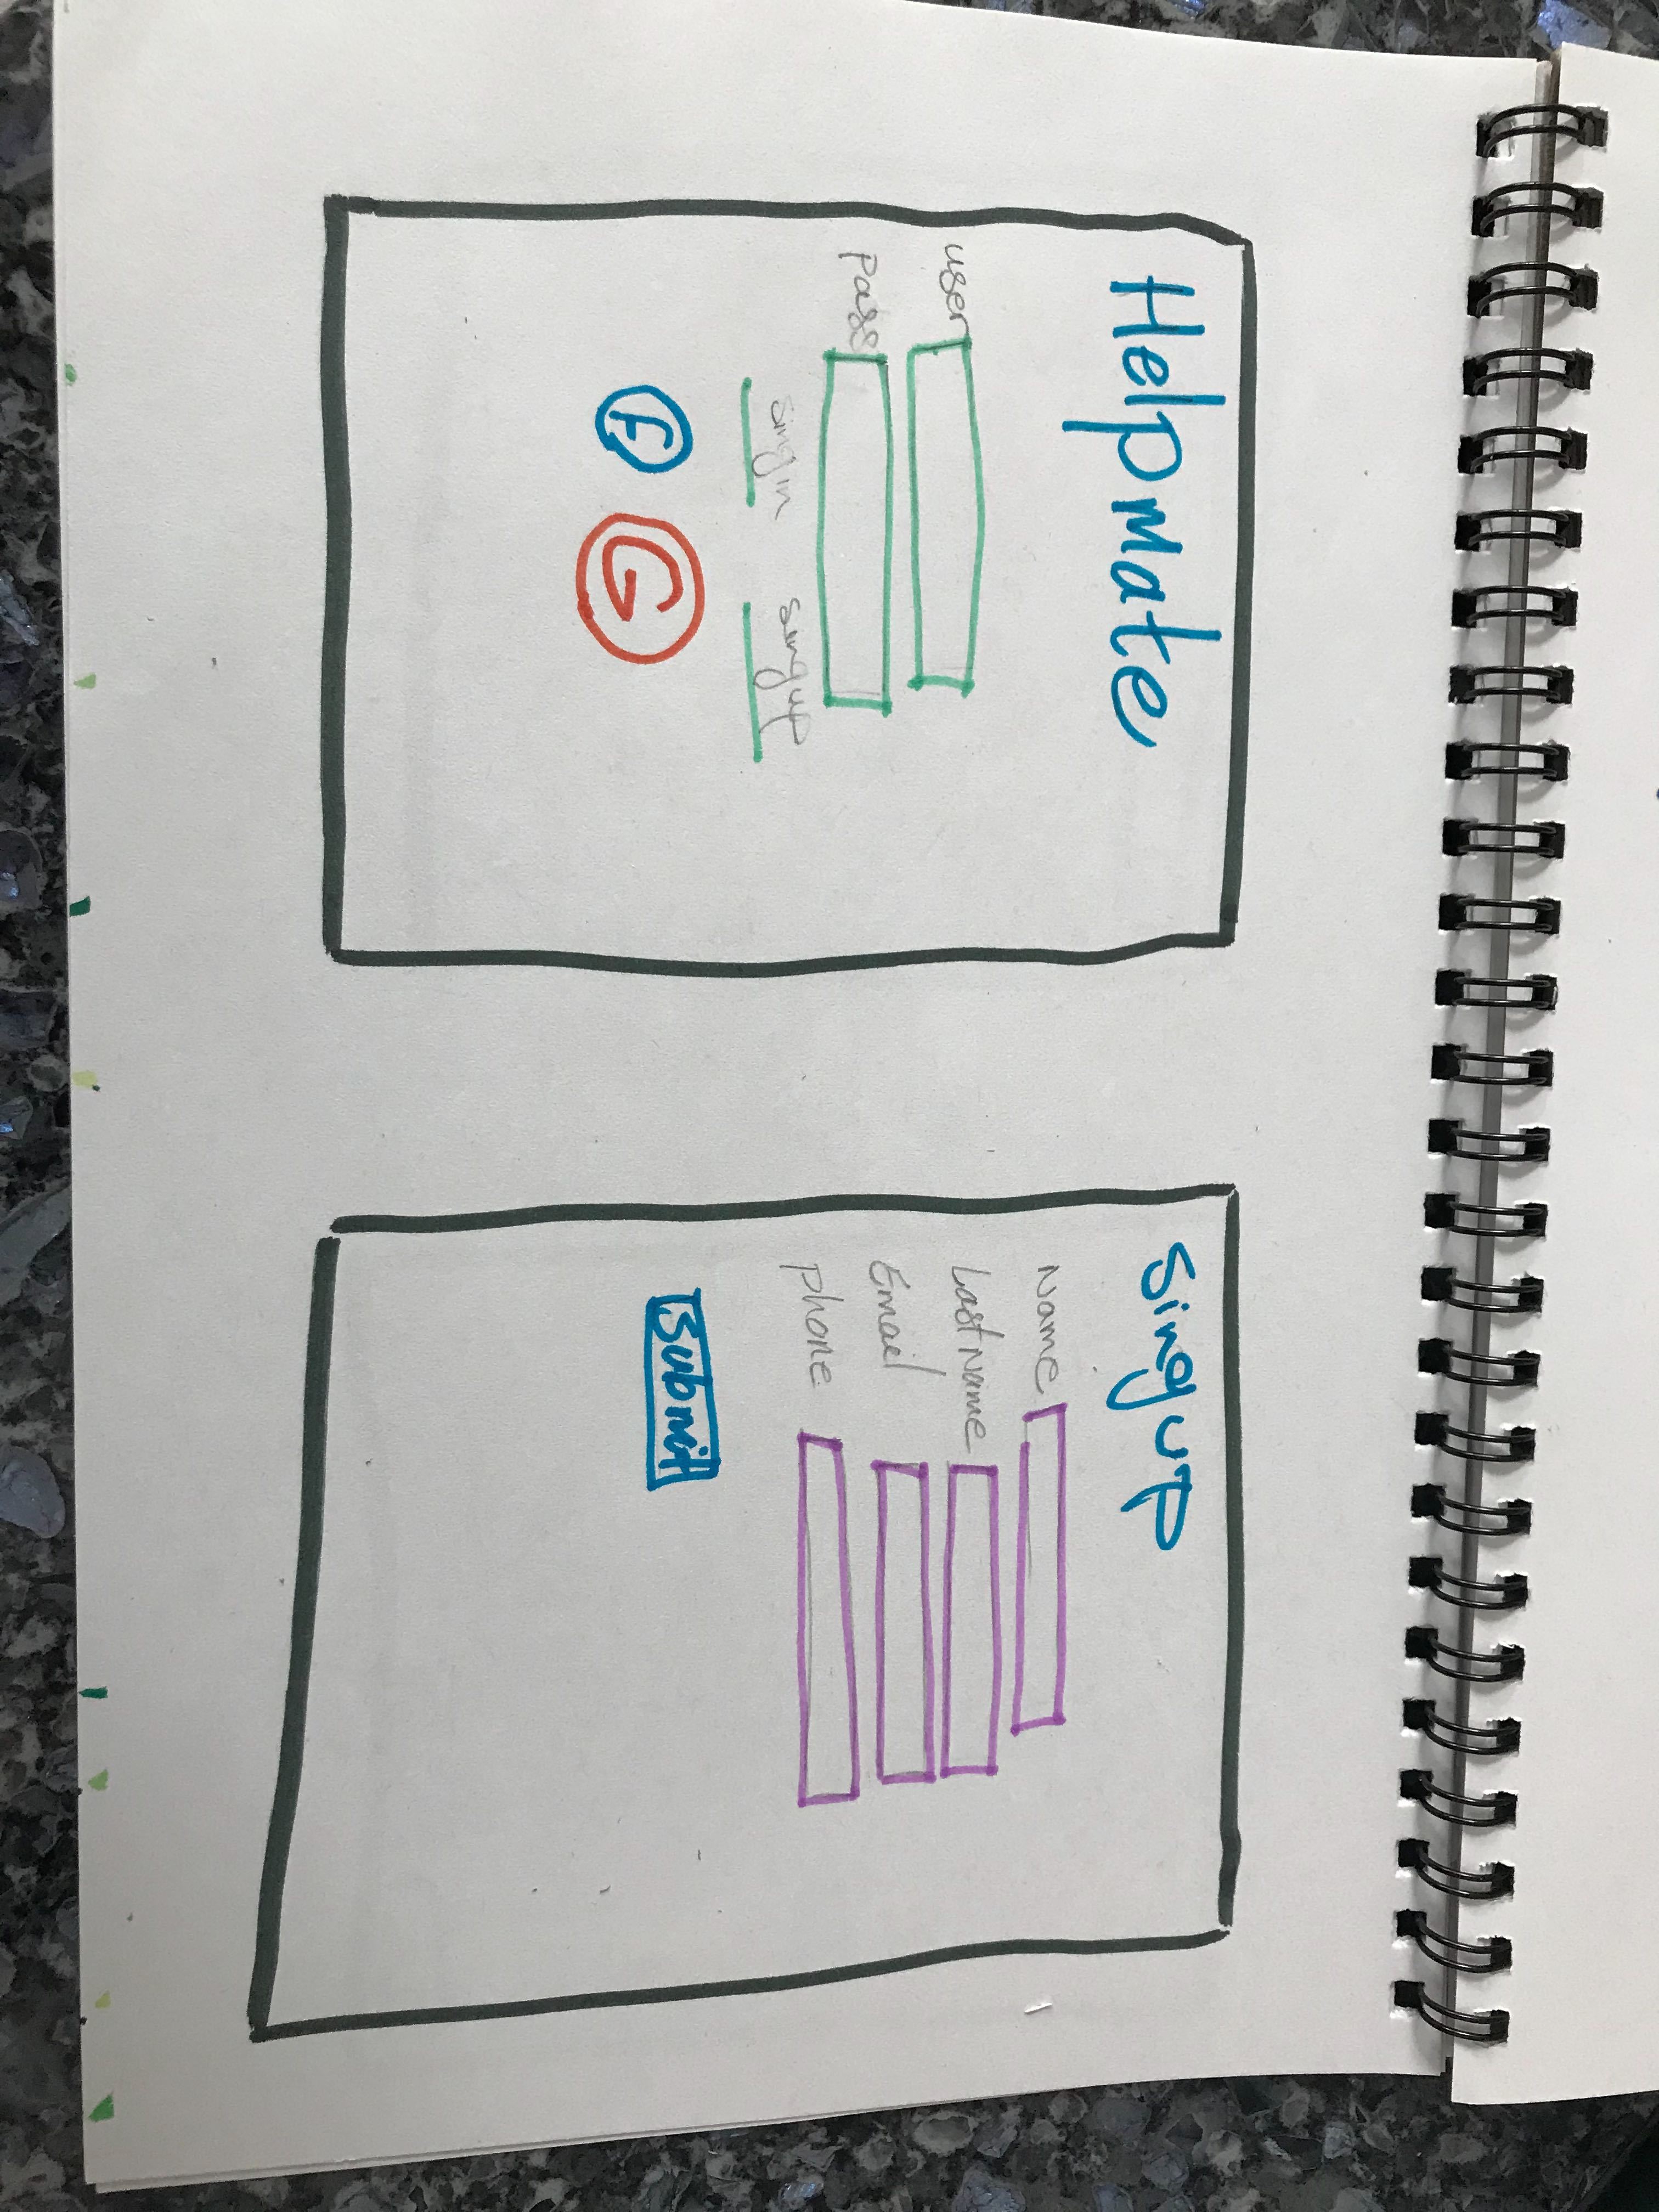 Helpmate
user
Pass
singin singup
F G
Singup
Name
Last Name
Email
Phone
Submit